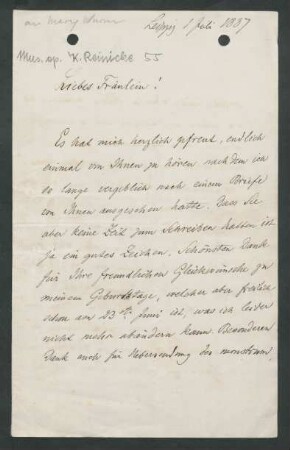 Leipzig 1 Juli 1887
Mus. ep. K. Reinicke 55
Liebes Fräulein!
Es hat mich herzlich gefreut, endlich
einmal von Ihnen zu hören nachdem ich
so lange vergeblich nach einem Briefe
von Ihnen ausgesehen hatte. Dass Sie
aber keine Zeit zum Schreiben hatten ist
ja ein gutes Zeichen. Schönsten Dank
für Ihre freundlichen Glückwünsche zu
meinem Geburtstage, welcher aber freilich
schon am 23ten Juni ist, was ich leider
nicht mehr abändern kann. Besonderen
Dank auch für Uebersendung des